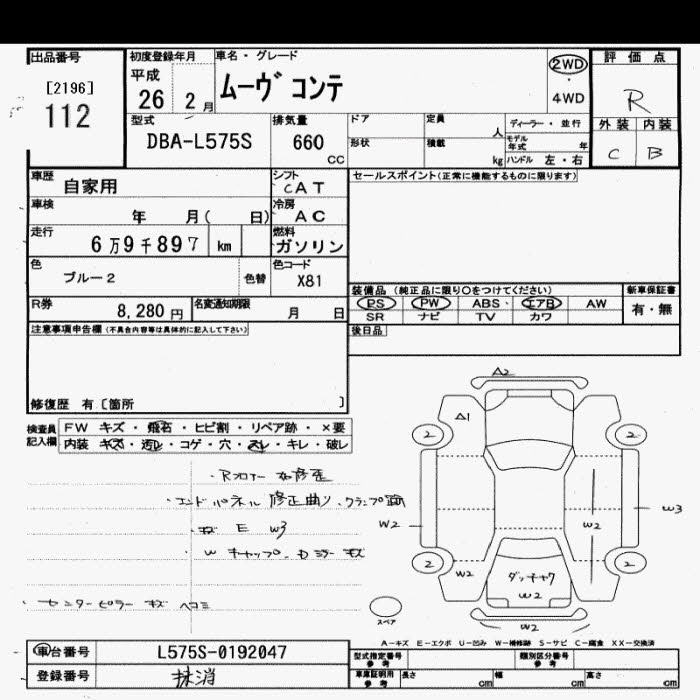 出品番号
[2196]
112
初度登録年月
平成
26 2月
車名・グレード
ムーヴ コンテ
2WD
・
4WD
評価点
R
外装 内装
C B
型式
DBA-L575S
排気量
660
CC
ドア
定員
人
形状
積載
kg
ディーラー・並行
モデル年式 年
ハンドル 左・右
車歴
自家用
シフト
CAT
車検
年 月( 日)
冷房
AC
走行
6万9千897 km
燃料
ガソリン
色
ブルー2
色替
色コード
X81
R券
8,280円
名変通知期限
月 日
セールスポイント(正常に機能するものに限ります)
装備品 (純正品に限り○をつけてください)
PS PW ABS エアB AW
SR ナビ TV カワ
新車保証書
有・無
後日品
注意事項申告欄(不具合内容等は具体的に記入して下さい)
修復歴 有[箇所 ]
検査員記入欄
FW キズ・飛石・ヒビ割・リペア跡・×要
内装 キズ・汚レ・コゲ・穴・スレ・キレ・破レ
・Rフロアー
・エンドパネル 修正曲り、クランプ跡
・キズ E W3
・Wキャップ・Dミラー キズ
・センターピラー キズ ヘコミ
A2
A1
2
2
W2
W2
W3
2
2
W2
ダッチャク
W2
W2
スペア
A-キズ E-エクボ U-凹み W-補修跡 S-サビ C-腐食 XX-交換済
車台番号
L575S-0192047
登録番号
抹消
型式指定番号
参考
類別区分番号
参考
車庫証明用
参考
長さ cm
幅 cm
高さ cm